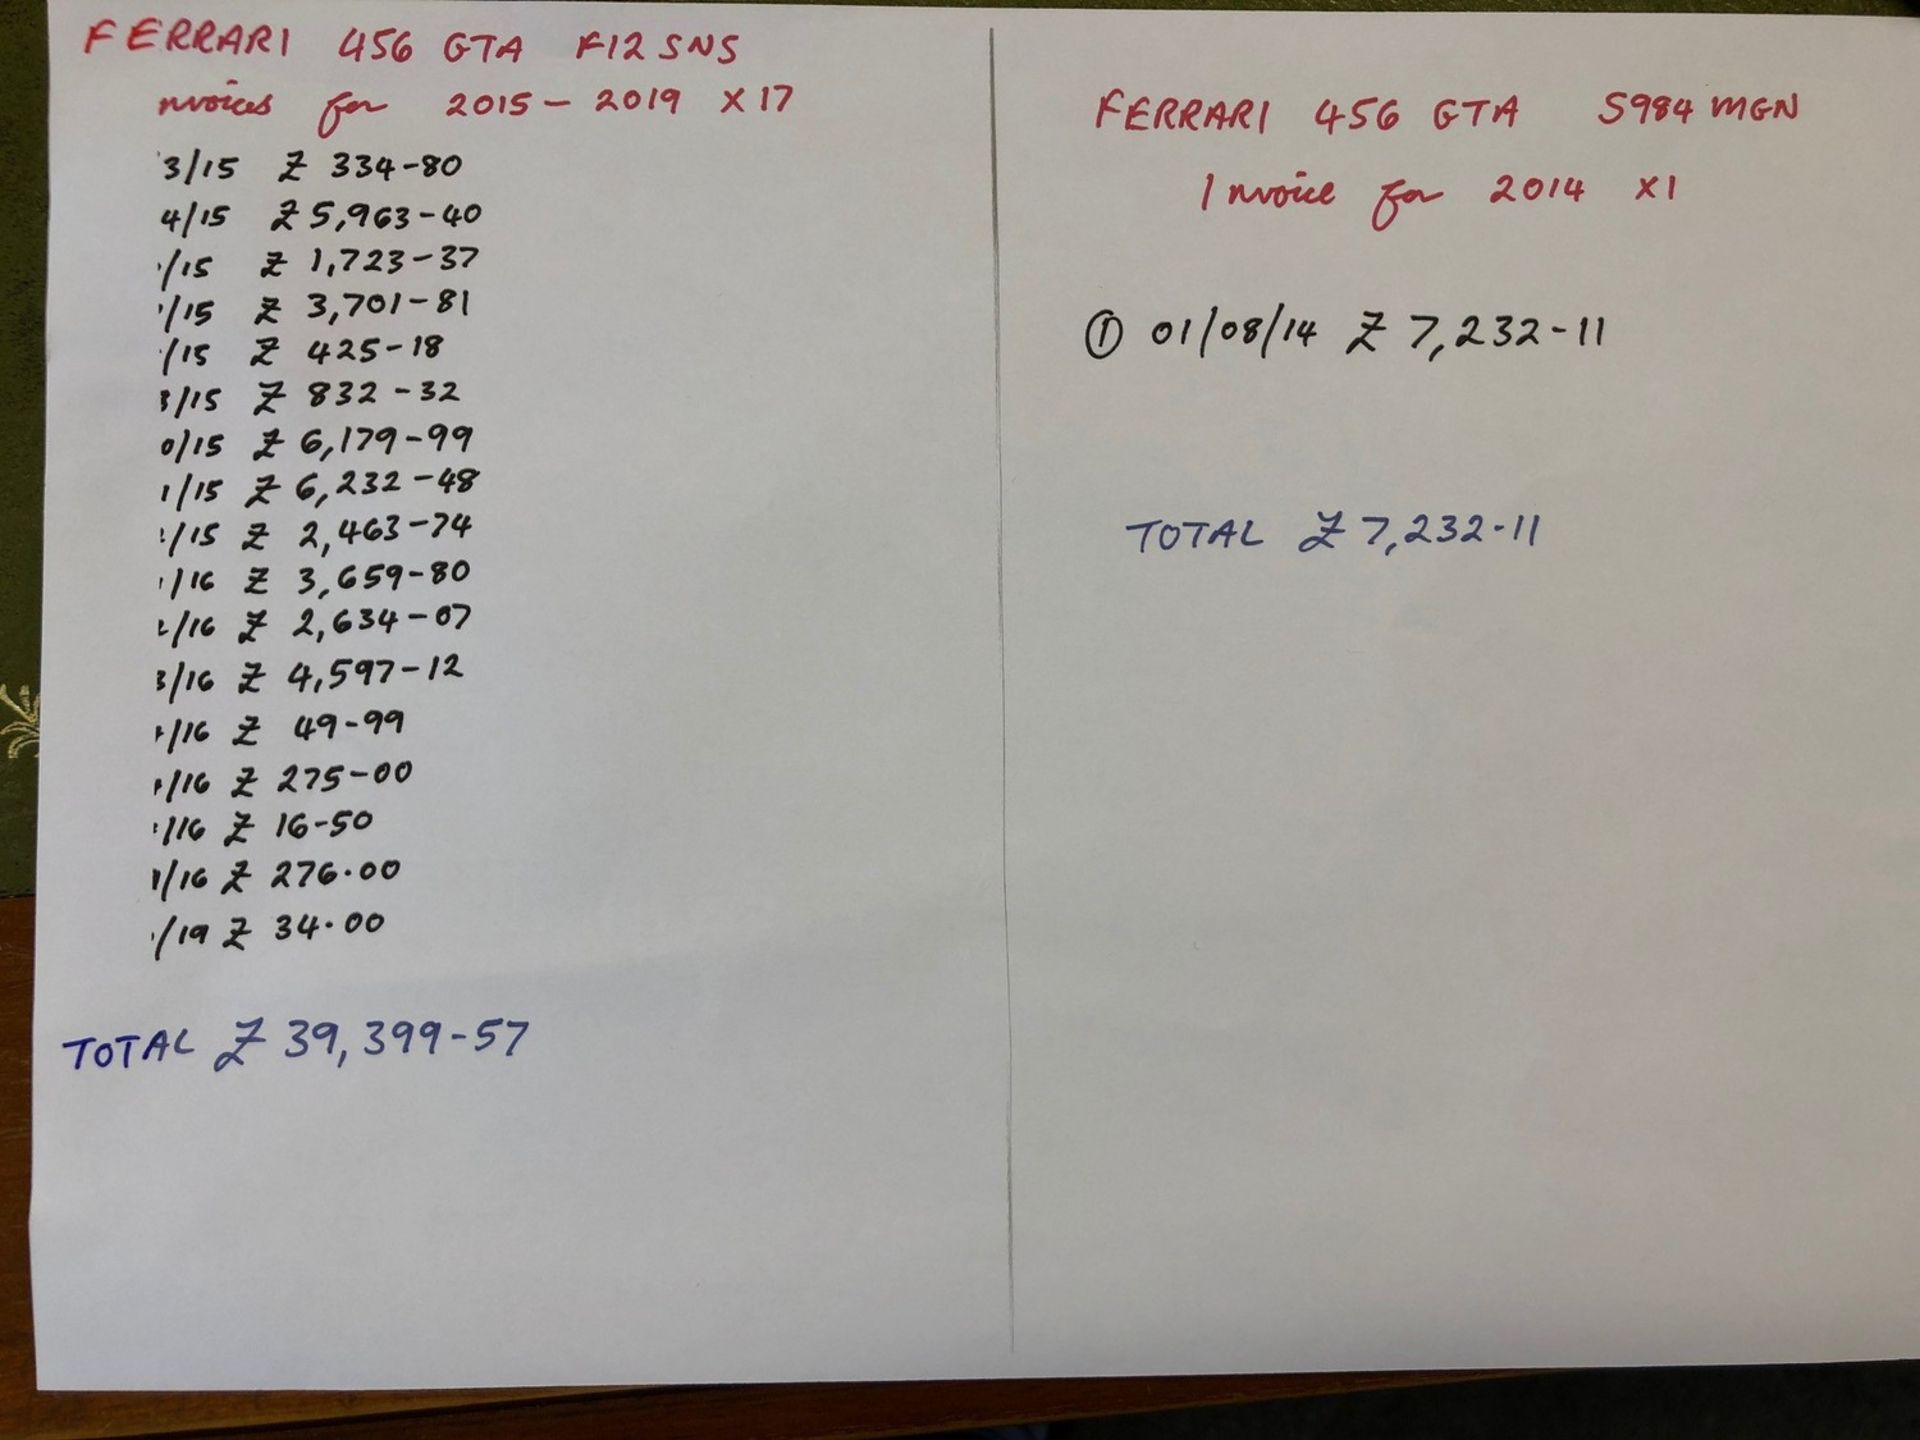 FERRARI 456 GTA F12 SNS
nvoices for 2015 - 2019 X17
3/15 £ 334-80
4/15 £ 5,963-40
/15 £ 1,723-37
/15 £ 3,701-81
/15 £ 425-18
3/15 £ 832-32
0/15 £ 6,179-99
1/15 £ 6,232-48
/15 £ 2,463-74
/16 £ 3,659-80
2/16 £ 2,634-07
3/16 £ 4,597-12
/16 £ 49-99
/16 £ 275-00
/16 £ 16-50
/16 £ 276.00
/19 £ 34.00
TOTAL £ 39,399-57
FERRARI 456 GTA S984 MGN
Invoice for 2014 X1
① 01/08/14 £ 7,232-11
TOTAL £ 7,232-11